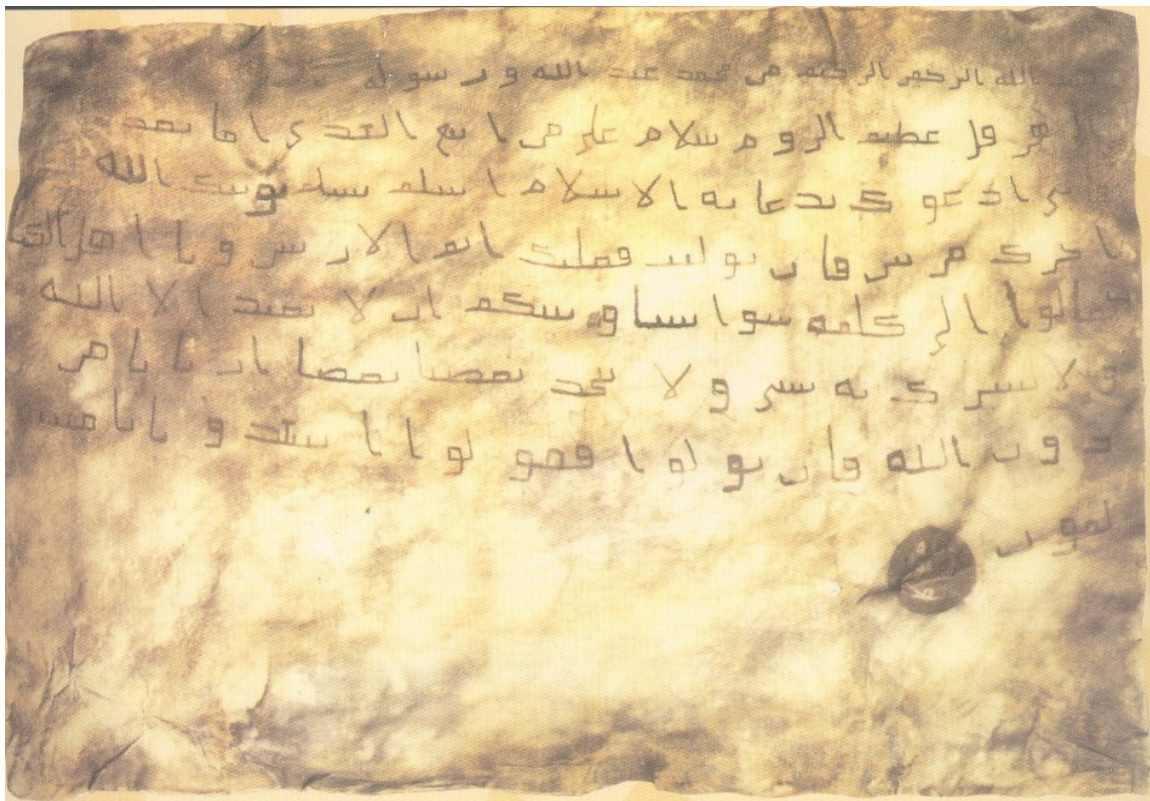 بسم الله الرحمن الرحيم من محمد عبد الله ورسوله
هرقل عظيم الروم سلام على من اتبع الهدى اما بعد
ادعوك بدعاية الاسلام اسلم تسلم يوتك الله
اجرك مرتين فان توليت فعليك اثم الاريسين ويا اهل الكتا
تعالوا الى كلمة سوا بيننا وبينكم ان لا نعبد الا الله
ولا نشرك به شى ولا يتخذ بعضنا بعضا اربابا من
دون الله فان تولوا فقولوا
لمون